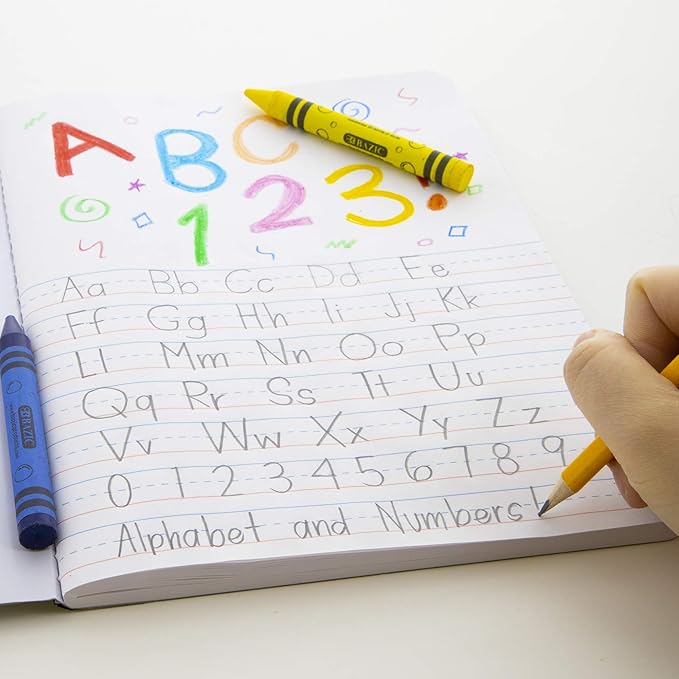 A B C
1 2 3
BAZIC
Aa Bb Cc Dd Ee
Ff Gg Hh Ii Jj Kk
Ll Mm Nn Oo Pp
Qq Rr Ss Tt Uu
Vv Ww Xx Yy Zz
0 1 2 3 4 5 6 7 8 9
Alphabet and Numbers!
BAZIC